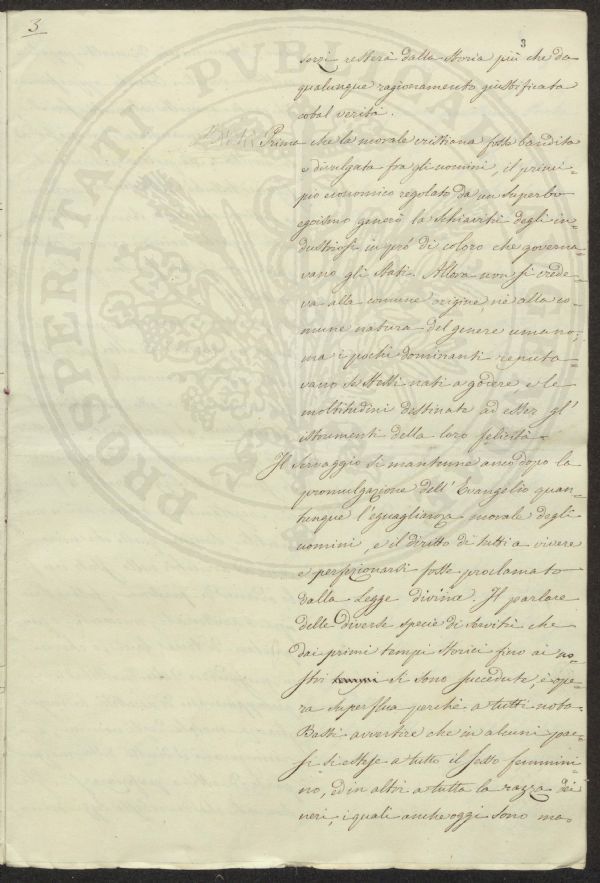 3
3
sorsi resterà dalla storia più che da
qualunque ragionamento giustificata
cotal verita.
Prima che la morale cristiana fosse bandita
e divulgata fra gli uomini, il princi-
pio economico regolato da un superbo
egoismo generò la schiavitù degli in-
dustriosi in pró di coloro che governa-
vano gli Stati. Allora non si crede-
va alla comune origine, nè alla co-
mune natura del genere umano;
ma i pochi dominanti reputa-
vano se stessi nati a godere e le
moltitudini destinate ad esser gl'
istrumenti della loro felicità.
Il servaggio si mantenne anco dopo la
promulgazione dell'Evangelio quan-
tunque l'eguaglianza morale degli
uomini, e il diritto di tutti a vivere
e perfezionarsi fosse proclamato
dalla Legge divina. Il parlare
delle diverse specie di servitù che
dai primi tempi storici fino ai no-
stri tempi si sono succedute, è ope-
ra superflua perchè a tutti nota.
Basti avvertire che in alcuni pae-
si si estese a tutto il sesso femmini-
no, ed in altri a tutta la razza dei
neri, i quali anche oggi sono ma-
PROSPERITATI PUBLICAE